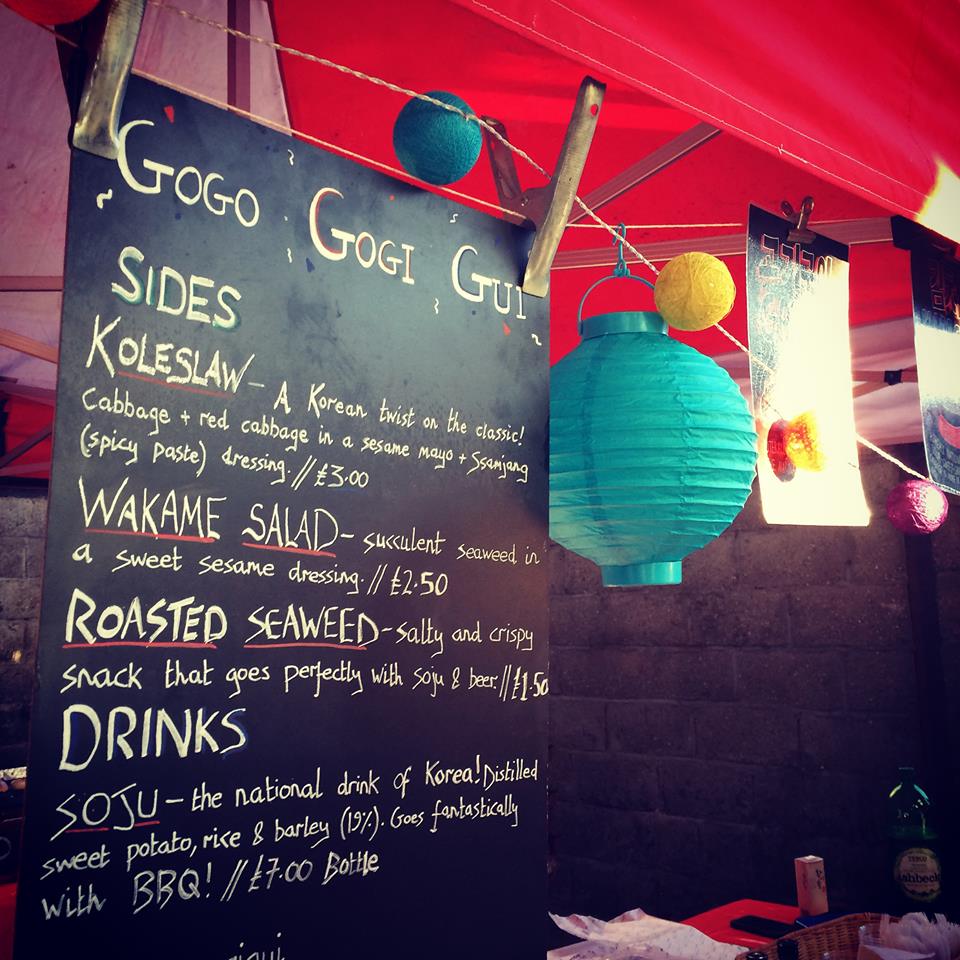 GOGO GOGI GUI
SIDES
KOLESLAW - A Korean twist on the classic!
Cabbage + red cabbage in a sesame mayo + Ssamjang
(spicy paste) dressing. // £3.00
WAKAME SALAD - succulent seaweed in
a sweet sesame dressing. // £2.50
ROASTED SEAWEED - salty and crispy
snack that goes perfectly with soju & beer. // £1.50
DRINKS
SOJU - the national drink of Korea! Distilled
sweet potato, rice & barley (19%). Goes fantastically
with BBQ! // £7.00 Bottle